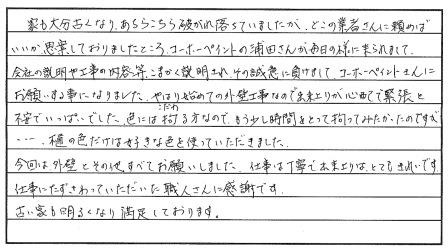 家も大分古くなり、あちらこちら破がれ落ちていましたが、どこの業者さんに頼めば
いいか思案しておりましたところ、コーホーペイントの浦田さんが毎日の様に来られまして、
会社の説明や工事の内容等、こまかく説明され、その誠意に負けまして、コーホーペイントさんに
お願いする事になりました。やはり始めての外壁工事なので出来上りが心配で緊張と
不安でいっぱいでした。色には拘(こだわ)る方なので、もう少し時間をとって拘ってみたかったのですが
・・・、樋の色だけは好きな色を使っていただきました。
今回は外壁とその他、すべてお願いしました。仕事は丁寧で出来上りは、とてもきれいです
仕事にたずさわっていただいた職人さんに感謝です。
古い家も明るくなり満足しております。